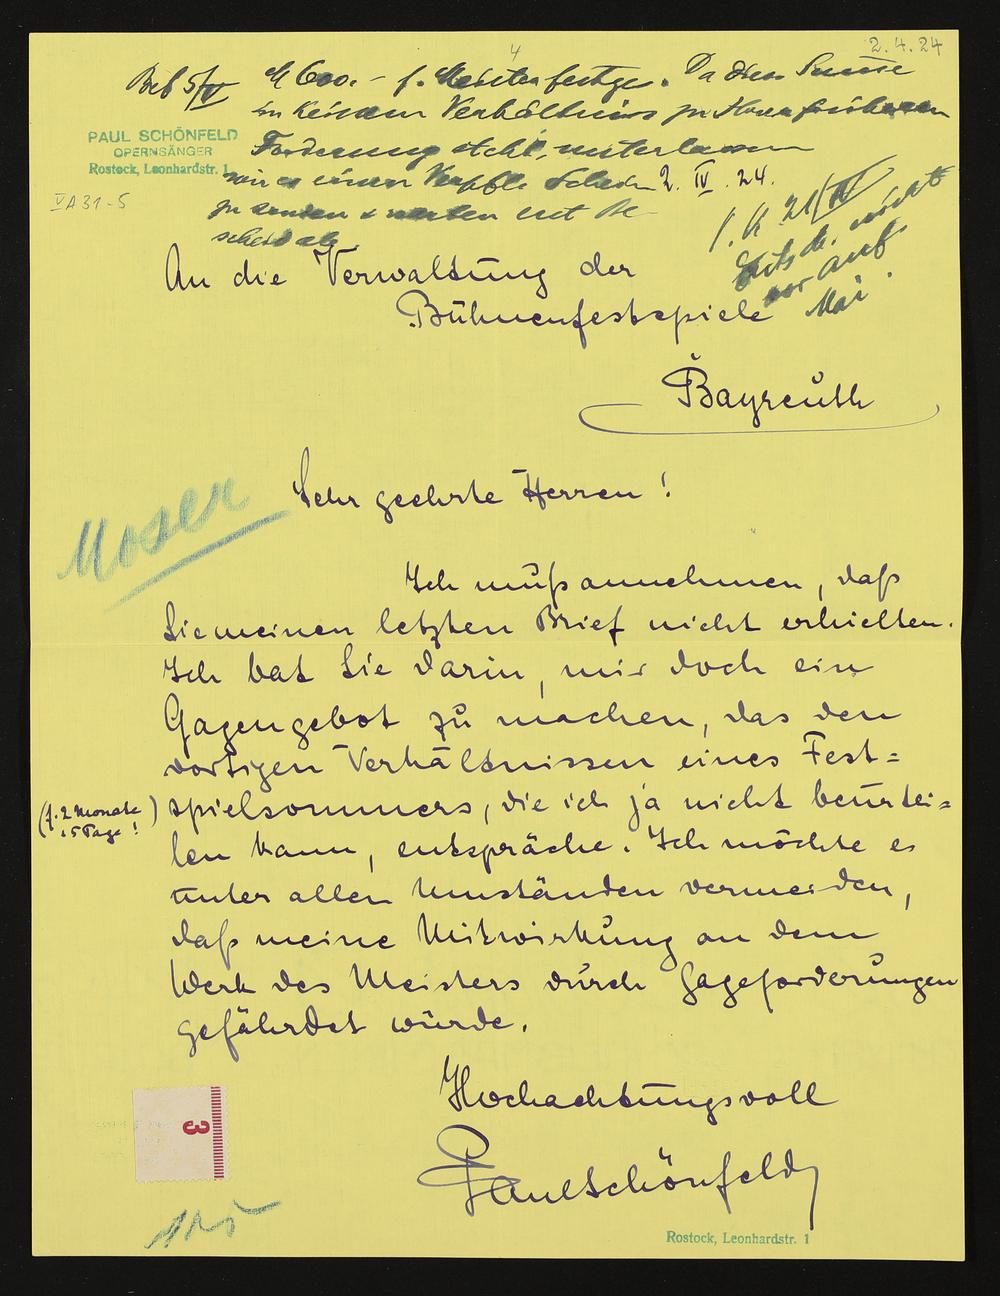 2.4.24
4
M 600.- f. Meistersinger. Da diese Summe
in keinem Verhältniss zu Ihrer früheren
Forderung steht, unterlassen
wir es einen
zu senden & warten erst Be-
scheid ab.
PAUL SCHÖNFELD
OPERNSÄNGER
Rostock, Leonhardstr. 1
VA31-5
2. IV. 24.
nicht
vor auf.
Mai.
An die Verwaltung der
Bühnenfestspiele
Bayreuth
Sehr geehrte Herren!
Moser
Ich muß annehmen, daß
Sie meinen letzten Brief nicht erhielten.
Ich bat Sie darin, mir doch ein
Gagengebot zu machen, das den
dortigen Verhältnissen eines Fest=
(f. 2 Monate
15 Tage!)
spielsommers, die ich ja nicht beurtei=
len kann, entspräche. Ich möchte es
unter allen Umständen vermeiden,
daß meine Mitwirkung an dem
Werk des Meisters durch Gageforderungen
gefährdet würde.
Hochachtungsvoll
Paul Schönfeld
3
Rostock, Leonhardstr. 1